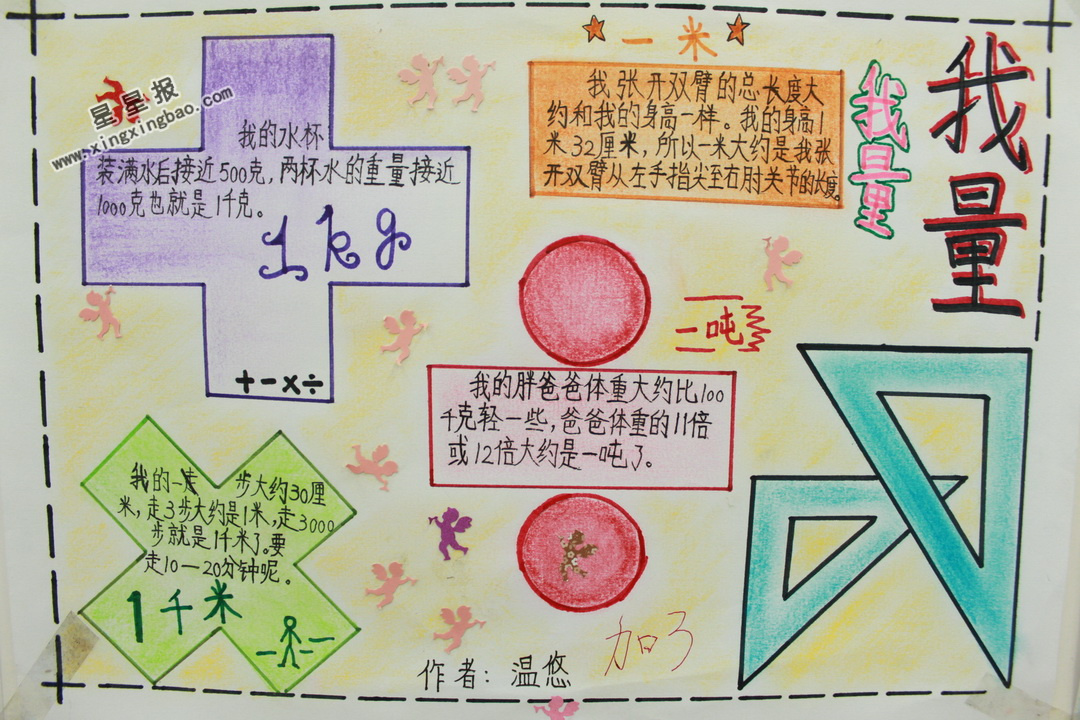 我量
我量
一米
我张开双臂的总长度大
约和我的身高一样。我的身高1
米32厘米，所以一米大约是我张
开双臂从左手指尖至右肘关节的长度。
星星报
www.xingxingbao.com
我的水杯
装满水后接近500克，两杯水的重量接近
1000克也就是1千克。
1kg
+-×÷
一吨
我的胖爸爸体重大约比100
千克轻一些，爸爸体重的11倍
或12倍大约是一吨了。
我的一 步大约30厘
米，走3步大约是1米，走3000
步就是1千米了。要
走10—20分钟呢。
1千米
作者：温悠